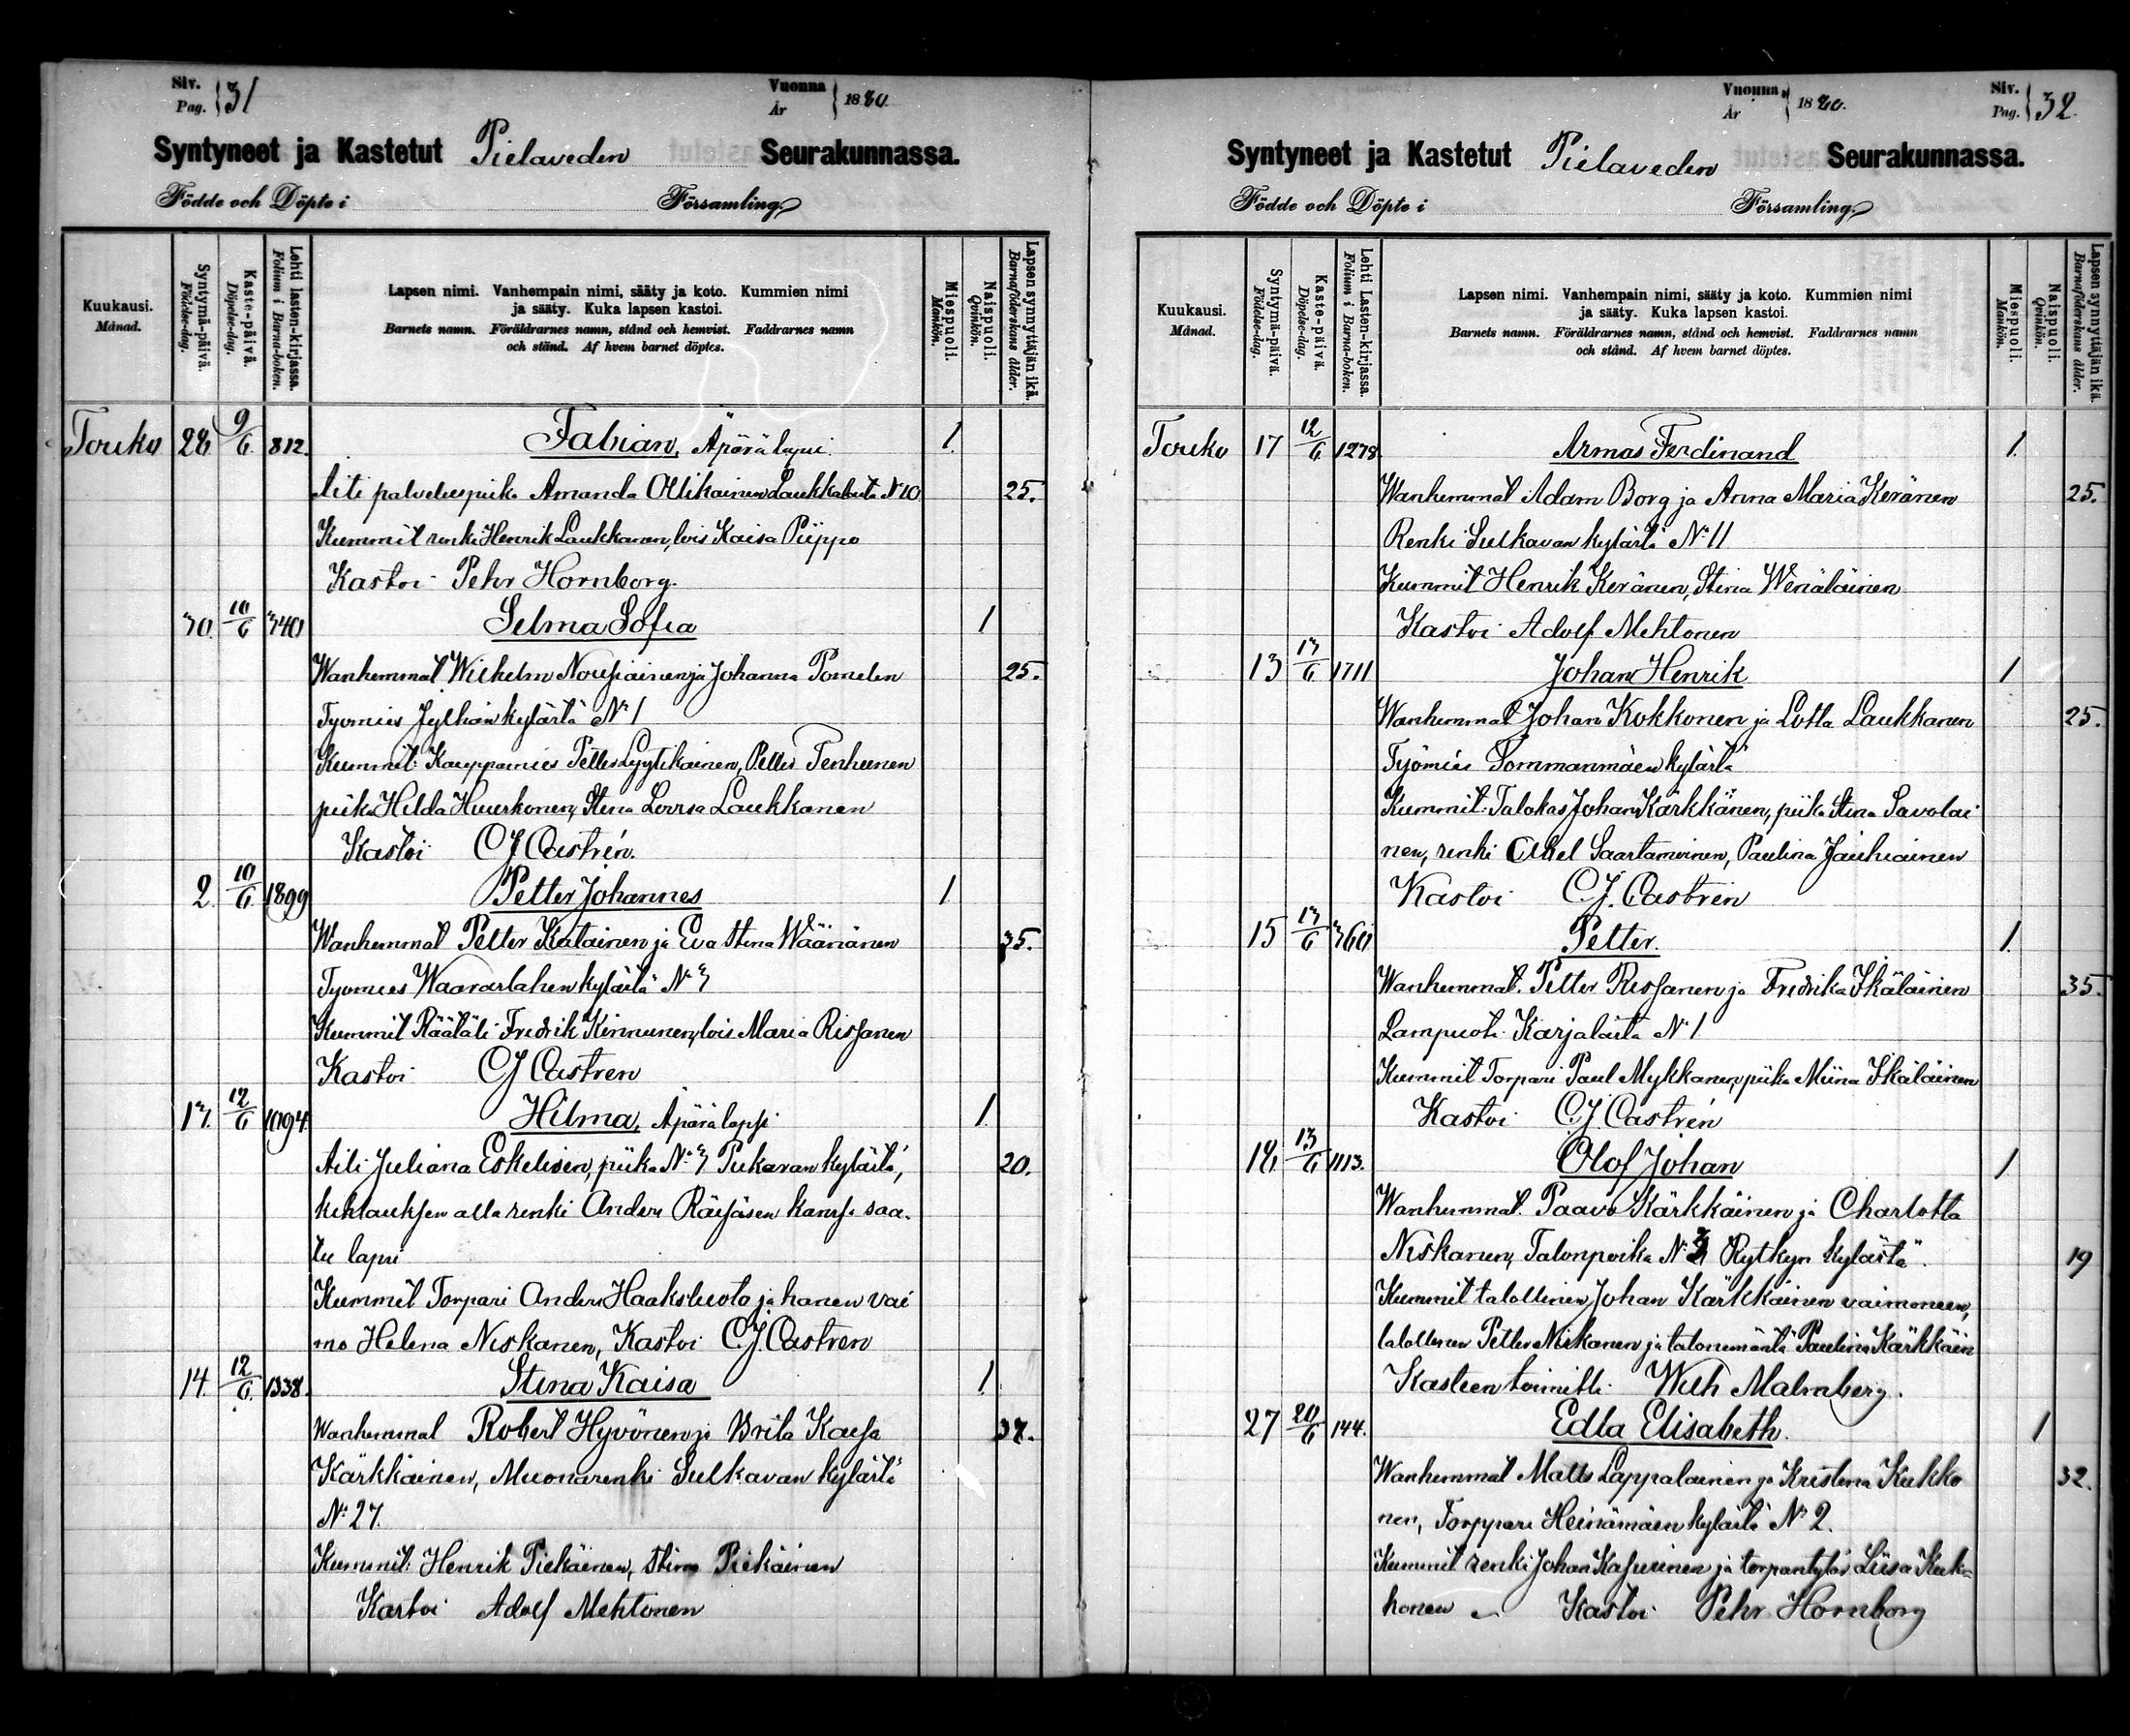 Siv. Pag. 31
Vuonna År 1880.
Syntyneet ja Kastetut Pielaveden Seurakunnassa.
Födde och Döpte i Församling
Kuukausi. Månad.
Syntymä-päivä. Födelse-dag.
Kaste-päivä. Döpelse-dag.
Lehti lasten-kirjassa. Folium i Barna-boken.
Lapsen nimi. Vanhempain nimi, sääty ja koto. Kummien nimi
ja sääty. Kuka lapsen kastoi.
Barnets namn. Föräldrarnes namn, stånd och hemvist. Faddrarnes namn
och stånd. Af hvem barnet döptes.
Miespuoli. Mankön.
Naispuoli. Qvinkön.
Lapsen synnyttäjän ikä. Barnaföderskans ålder.
Touko 28. 9/6. 812. Fabian, Äpärä lapsi. 1.
Aiti palveluspiika Amanda Ollikainen Laukkalasta N:10. 25.
Kummit renki Henrik Laukkanen, lois Kaisa Piippo
Kastoi Pehr Hornborg.
30. 10/6 340 Selma Sofia 1
Wanhemmat Wilhelm Nousiainen ja Johanna Pomelen 25.
Tyomies Jylhän kylästä N:1
Kummit: Kauppamies Petter Lyytikäinen, Petter Tenhunen
piika Hilda Huuskonen, Stina Lovisa Laukkanen
Kastoi CJ Castrén.
2. 10/6. 1899 Petter Johannes 1
Wanhemmat Petter Katainen ja Eva Stina Wäänänen 35.
Tyomies Waaraslahen kylästä N:3
Kummit Räätäli Fredrik Kinnunen, lois Maria Rissanen
Kastoi CJ Castren
13. 12/6 1094. Hilma, Äpärä lapsi 1.
Äiti Juliana Eskelinen, piika N:3 Pukaran kylästä, 20.
kihlauksen alla renki Anders Räisäsen kanssa saa-
tu lapsi
Kummit Torpari Anders Haaksluoto ja hänen vai
mo Helena Niskanen, Kastoi C.J. Castren
14. 12/6. 1338. Stina Kaisa 1.
Wanhemmat Robert Hyvönen ja Brita Kaisa 37.
Kärkkäinen, Muonarenki Sulkavan kylästä
N:27.
Kummit: Henrik Piekäinen, Stina Piekäinen
Kastoi Adolf Mehtonen
Vuonna År 1880.
Siv. Pag. 32.
Syntyneet ja Kastetut Pielaveden Seurakunnassa.
Födde och Döpte i Församling
Kuukausi. Månad.
Syntymä-päivä. Födelse-dag.
Kaste-päivä. Döpelse-dag.
Lehti Lasten-kirjassa. Folium i Barna-boken.
Lapsen nimi. Vanhempain nimi, sääty ja koto. Kummien nimi
ja sääty. Kuka lapsen kastoi.
Barnets namn. Föräldrarnes namn, stånd och hemvist. Faddrarnes namn
och stånd. Af hvem barnet döptes.
Miespuoli. Mankön.
Naispuoli. Qvinkön.
Lapsen synnyttäjän ikä. Barnaföderskans ålder.
Touko 17 12/6 1278. Armas Ferdinand 1.
Wanhemmat Adam Borg ja Anna Maria Keränen 25.
Renki Sulkavan kylästä N:11
Kummit Henrik Keränen, Stina Wenäläinen
Kastoi Adolf Mehtonen
13 13/6 1711 Johan Henrik 1
Wanhemmat Johan Kokkonen ja Lotta Laukkanen 25.
Työmies Sommanmäen kylästä
Kummit: Talokas Johan Kärkkäinen, piika Stina Savolai
nen, renki Aksel Saastamoinen, Paulina Jäuhiainen
Kastoi C.J. Castrén
15 13/6 360 Petter. 1.
Wanhemmat. Petter Rissanen ja Fredrika Ikäläinen 35.
Lampuoti Karjalasta N:1
Kummit Torpari Paul Mykkänen, piika Miina Ikäläinen
Kastoi C.J. Castrén
18. 13/6 1113. Olof Johan 1
Wanhemmat. Paavo Kärkkäinen ja Charlotta
Niskanen, Talonpoika N:3 Rytkyn kylästä. 19
Kummit talollinen Johan Kärkkäinen vaimoneen,
talollinen Petter Niskanen ja talonemäntä Paulina Kärkkäin
Kasteen toimitti Wilh Malmberg.
27 20/6 144. Edla Elisabeth. 1
Wanhemmat Matts Lappalainen ja Kristina Kukko 32.
nen, Torppari Heinämäen kylästä N:2.
Kummit renki Johan Kasurinen ja torpantytär Liisa Kuk-
konen Kastoi Pehr Hornborg